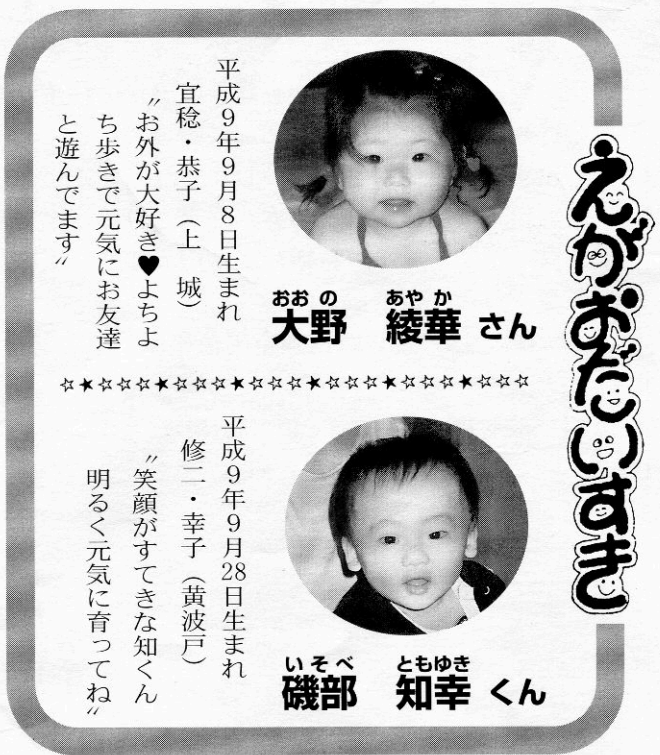 えがおだいすき
おおの あやか
大野 綾華 さん
平成9年9月8日生まれ
宜稔・恭子（上 城）
〝お外が大好き♥よちよ
ち歩きで元気にお友達
と遊んでます〟
☆★☆☆☆★☆☆☆★☆☆☆★☆☆☆★☆☆☆★☆☆☆
いそべ ともゆき
磯部 知幸 くん
平成9年9月28日生まれ
修二・幸子（黄波戸）
〝笑顔がすてきな知くん
明るく元気に育ってね〟